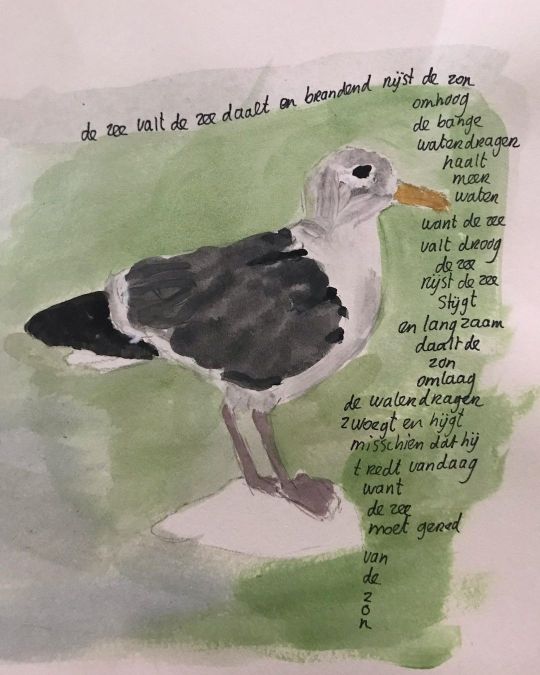 de zee valt de zee daalt en brandend rijst de zon
omhoog
de bange
waterdrager
haalt
meer
water
want de zee
valt droog
de zee
rijst de zee
Stijgt
en langzaam
daalt de
zon
omlaag
de waterdrager
zwoegt en hijgt
misschien dat hij
t redt vandaag
want
de zee
moet gered
van
de
z
o
n